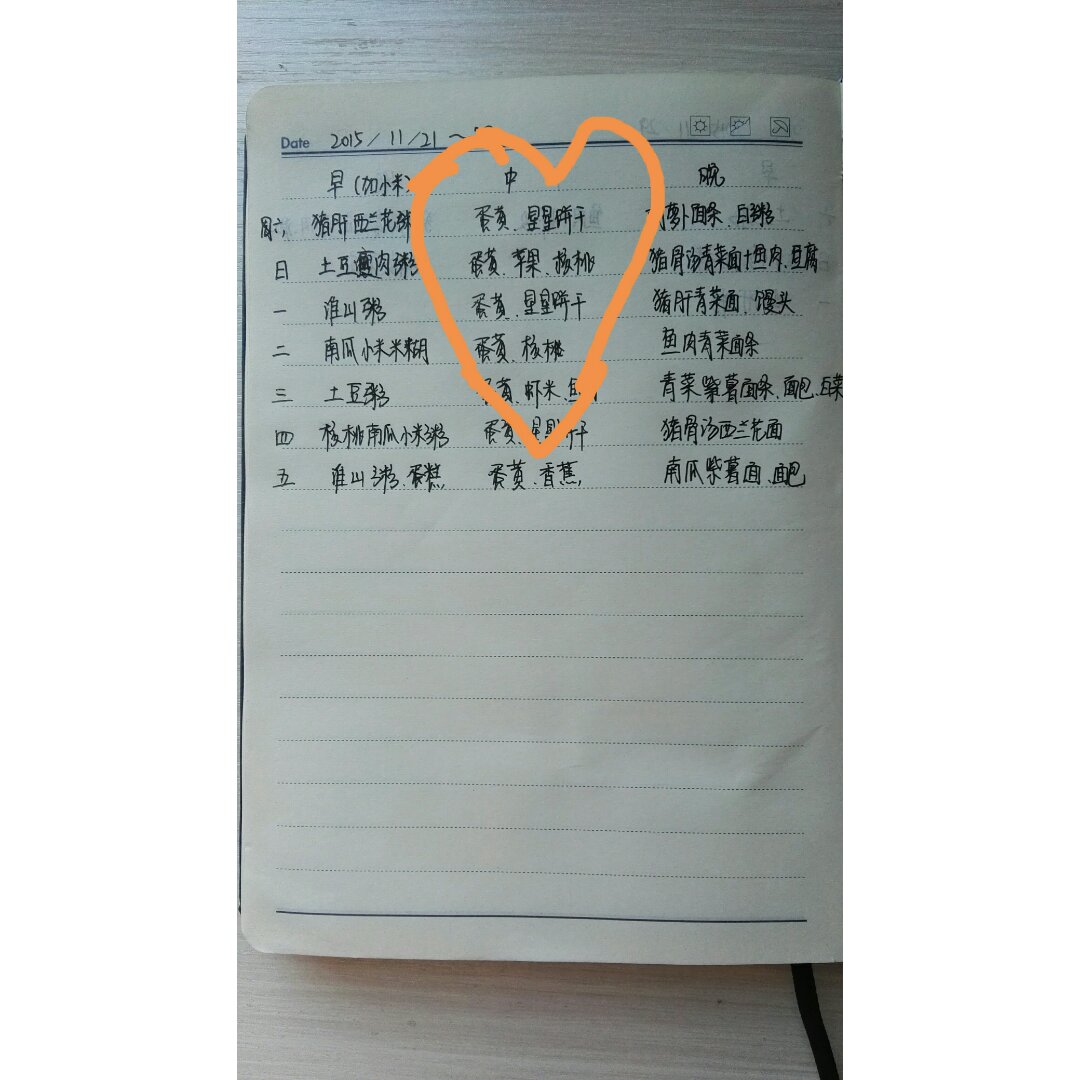 Date 2015/11/21～
早(加小米) 中 晚
周六 猪肝西兰花粥 蛋黄、星星饼干 萝卜面条、白粥
日 土豆瘦肉粥 蛋黄、苹果、核桃 猪骨汤青菜面+鱼肉、豆腐
一 淮山粥 蛋黄、星星饼干 猪肝青菜面、馒头
二 南瓜小米米糊 蛋黄、核桃 鱼肉青菜面条
三 土豆粥 蛋黄、虾米、 青菜紫薯面条、面包、白菜
四 核桃南瓜小米粥 蛋黄、星星饼干 猪骨汤西兰花面
五 淮山粥、蛋糕, 蛋黄、香蕉, 南瓜紫薯面、面包